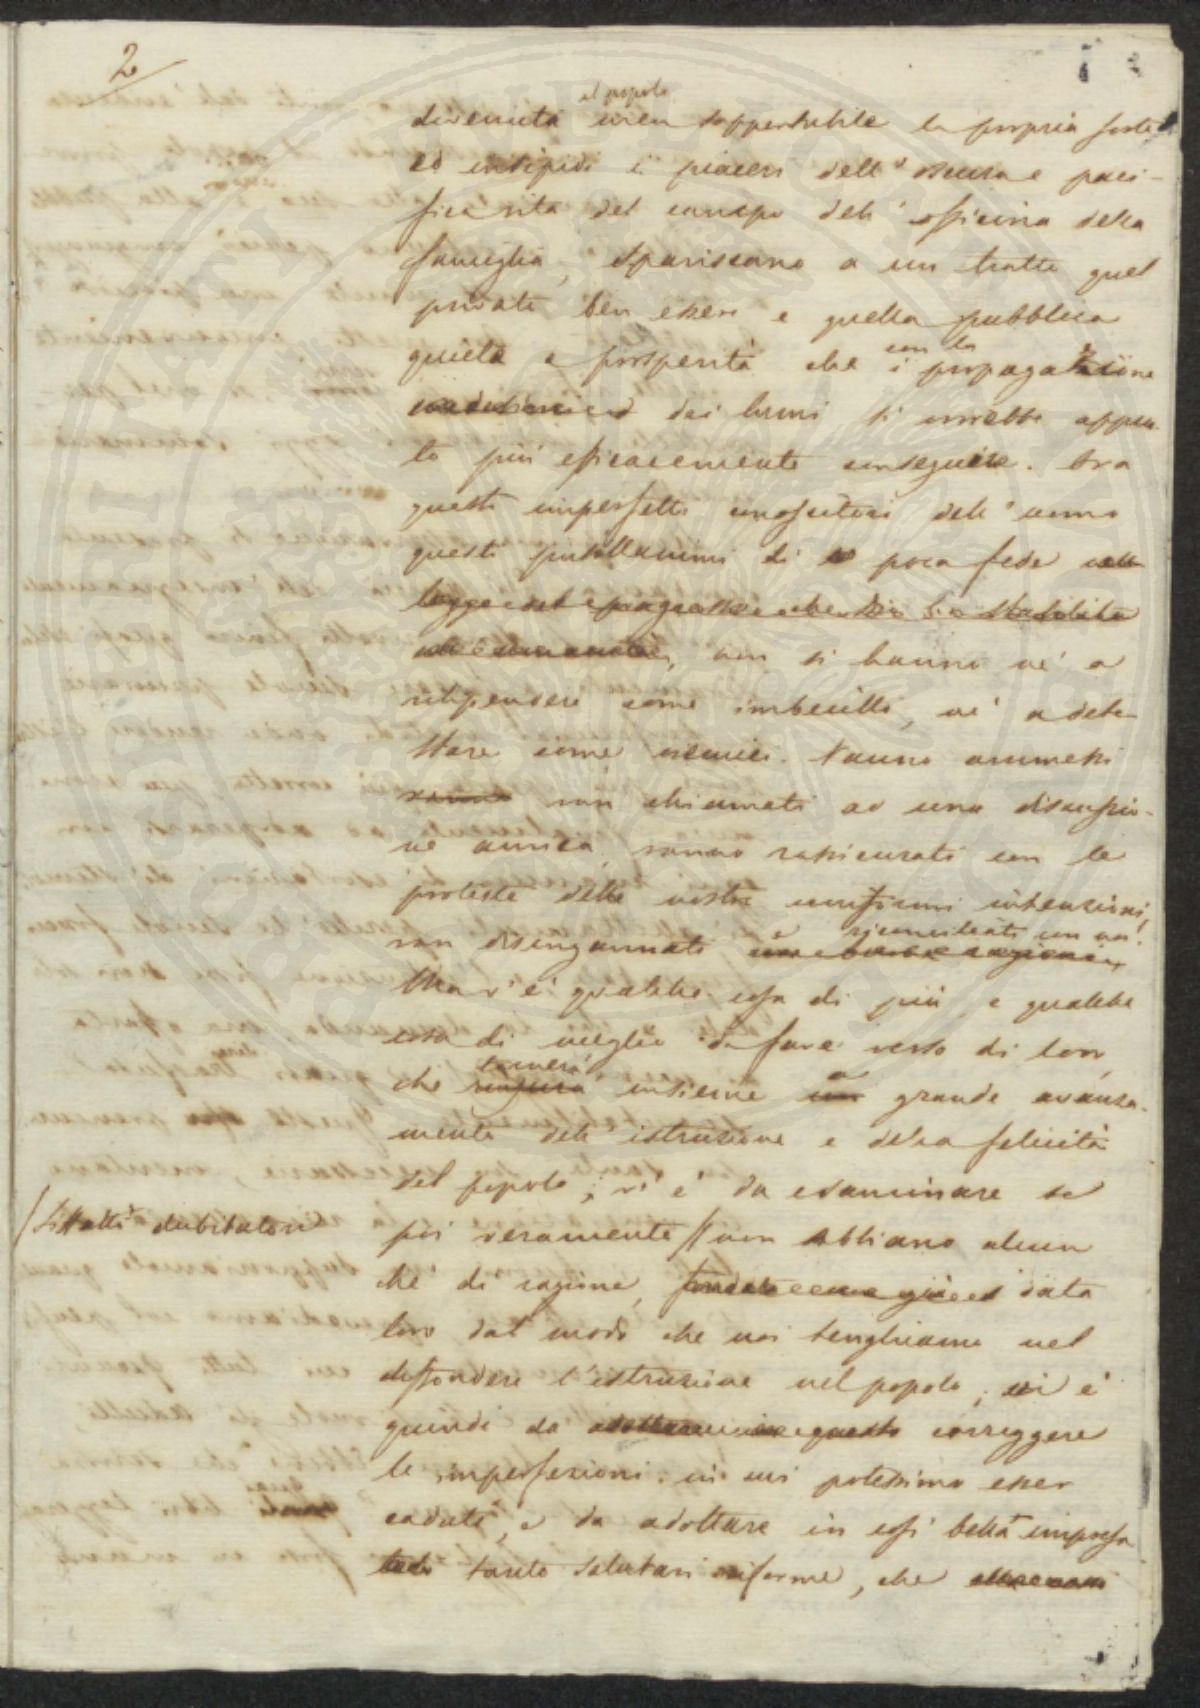 2
al popolo
divenuta men sopportabile la propria sorte
ed insipidi i piaceri dell'oscura e paci-
fica vita del campo dell'officina della
famiglia, spariscano a un tratto quel
privato ben essere e quella pubblica
quiete e prosperità che
con la
propagazione
dei lumi si vorrebbe appun-
to più efficacemente conseguire. Ora
questi imperfetti conoscitori dell'uomo
questi pusillanimi di poca fede nella
legge del progresso che Dio ha stabilita
all'umanità, non si hanno nè a
vilipendere come imbecilli, nè a dete-
stare come nemici. Vanno ammessi
van chiamati ad una discussio-
ne amica, vanno rassicurati con le
proteste delle nostre intenzioni,
riconciliati con noi.
van disingannati con buone ragioni
Ma v'è qualche cosa di più e qualche
cosa di meglio da fare verso di loro,
tornerà
che insieme a grande avanza-
mento dell'istruzione e della felicità
del popolo; v'è da esaminare se
(Siffatti dubitatori
poi veramente // non abbiano alcun
chè di ragione, data
loro dal modo che noi tenghiamo nel
diffondere l'istruzione nel popolo; vi è
quindi da correggere
le imperfezioni in cui potessimo esser
caduti, e da adottare in così bella impresa
tanto salutari riforme, che